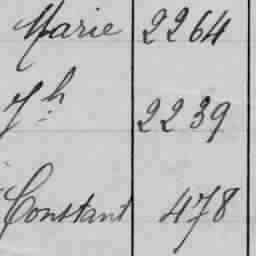 Marie 2264
Jh 2239
Constant 478